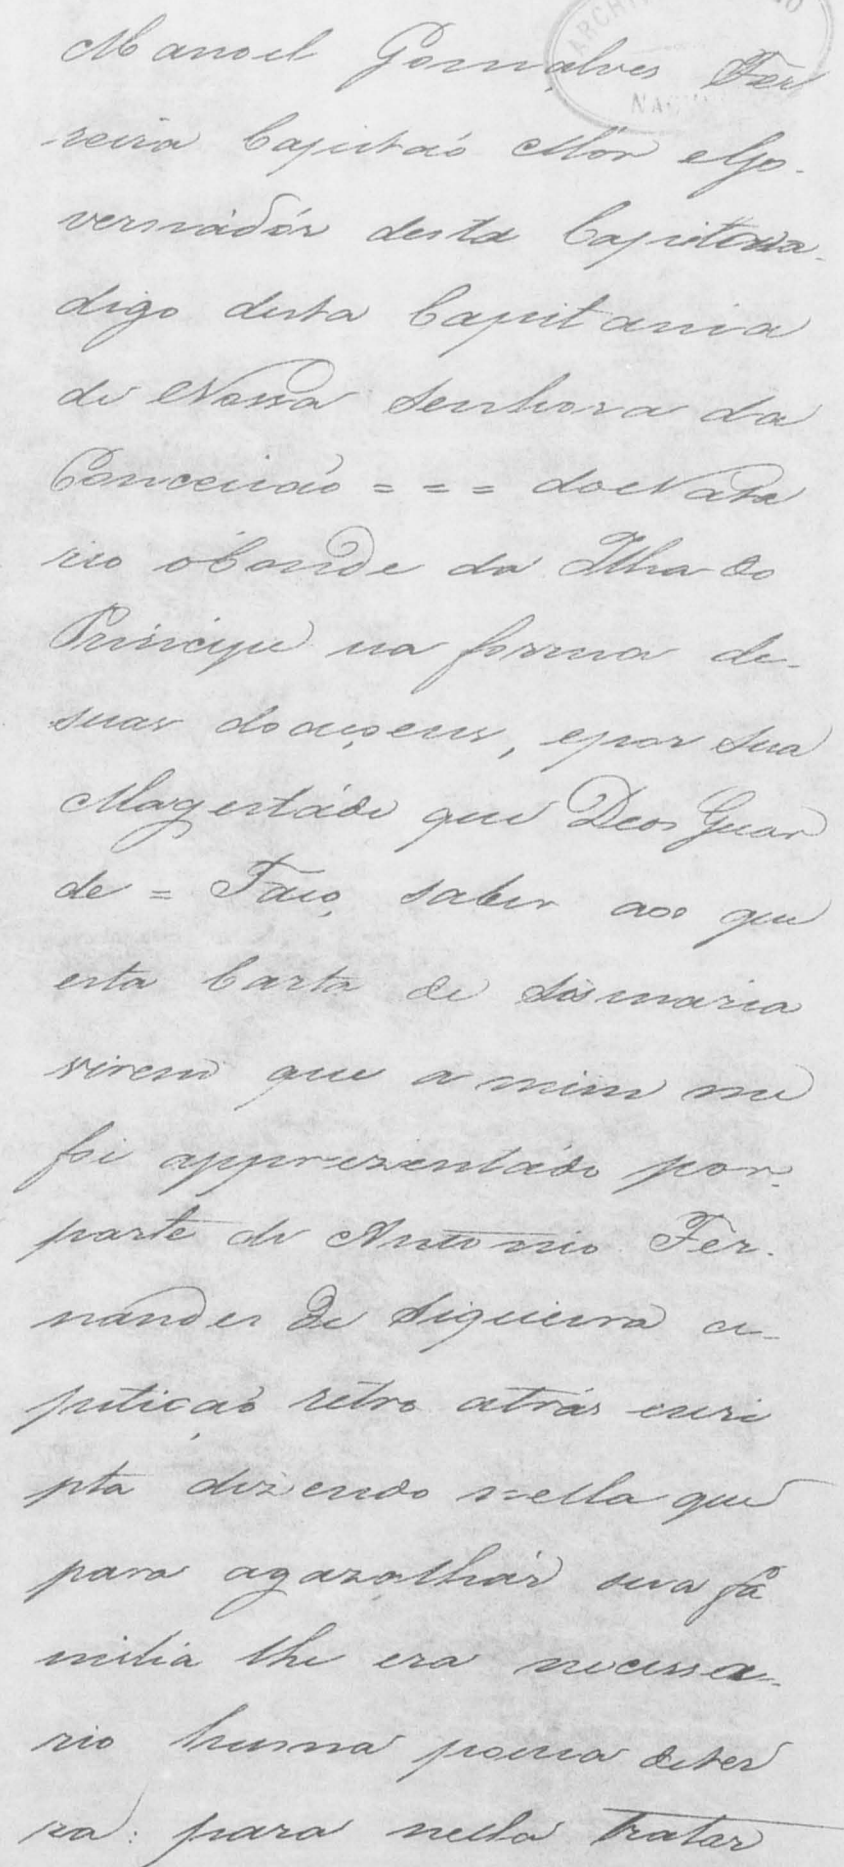 ARCHI
NAC
Manoel Gonçalves Fer
reira Capitaõ Mór e Go-
vernádór desta Capitania-
digo desta Capitania
de Nossa Senhora da
Conceicaõ = = = do
rio o Conde da Ilha do
Principe na forma de-
suas doaçoens, e por Sua
Magestáde que Deos Guar
de = Faço saber aos que
esta Carta de Sismaria
virem que a mim me
foi apprezentádo por-
parte de Antonio Fer-
nandes de Siqueira a-
petiçaõ rétro atrás escri
pta dizendo nella que
para agazalhár sua fa
milia lhe era necessa-
rio huma pouca de ter
ra: para nella tratar